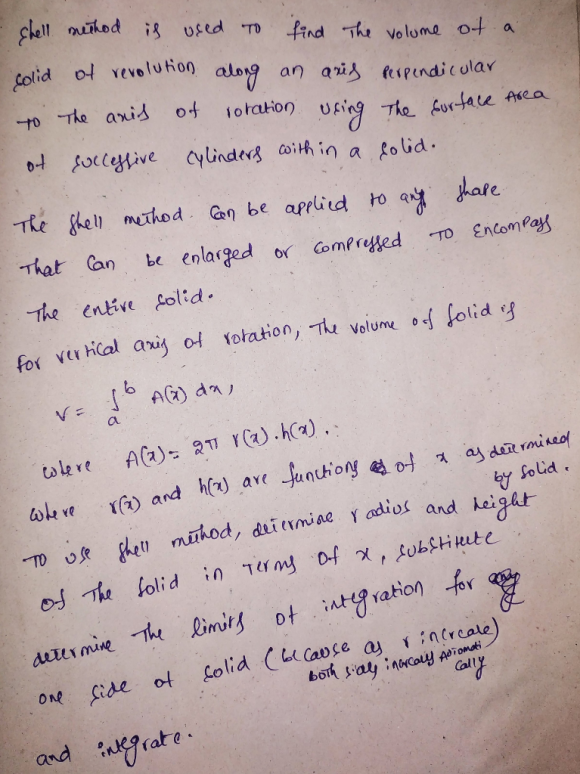 Shell method is used To find The volume of a
solid of revolution along an axis perpendicular
to The axis of rotation using The surface Area
of successive cylinders within a solid.
The shell method Can be applied to any shape
That Can be enlarged or compressed To Encompass
The entire solid.
For vertical axis of rotation, The volume of solid is
V = ∫ₐᵇ A(x) dx,
where A(x) = 2π r(x).h(x).
where r(x) and h(x) are functions of x as determined
by solid.
To use shell method, determine radius and height
of The solid in Terms of x, substitute
determine The limits of integration for
one side of solid (because as r increase)
both sides increases Automati
cally
and integrate.